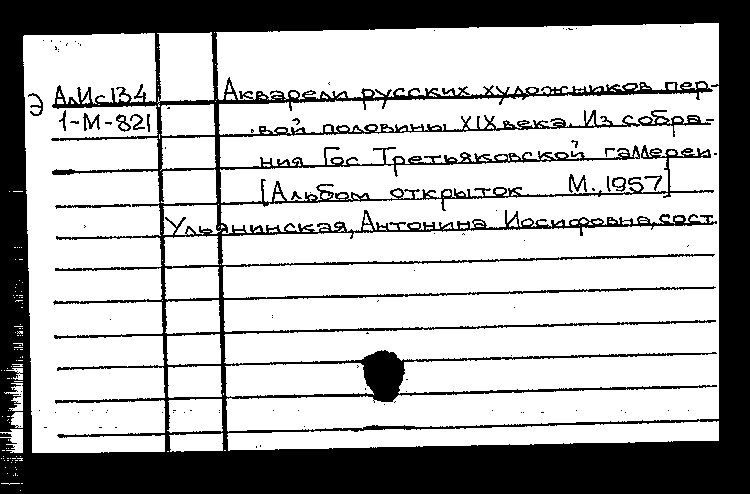 Э АлИс134 Акварели русских художников пер-
1-М-821 вой половины XIX века. Из собра-
ния Гос Третьяковской галлереи.
[Альбом открыток М., 1957]
Ульянинская, Антонина Иосифовна, сост.